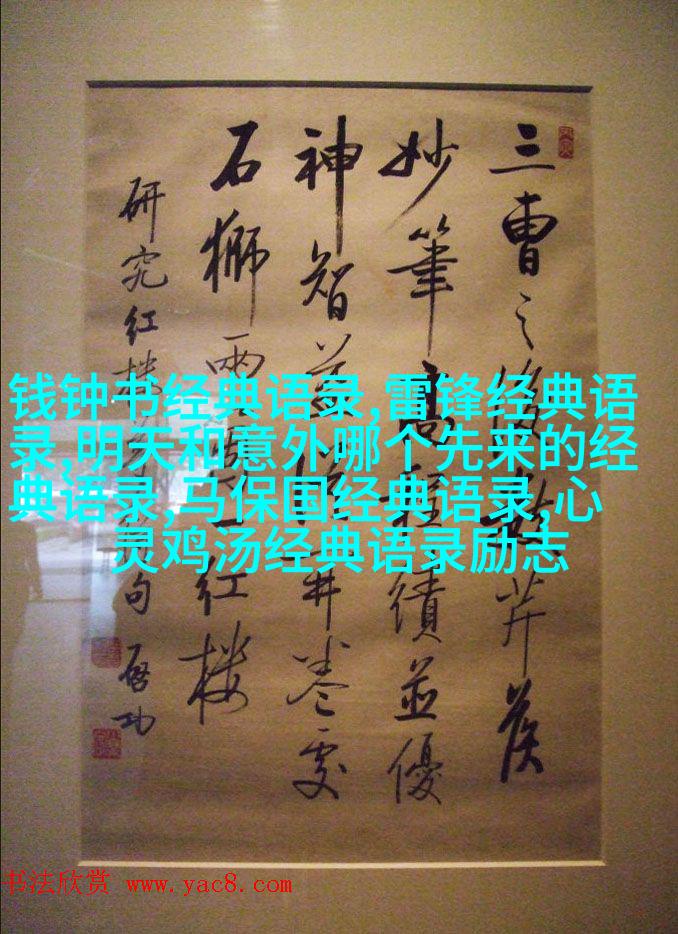 三曹之後芹侯
妙筆高程績並優
神智益開卷處
石獅兩一紅樓
研究紅樓句 啓功
钱钟书经典语录,雷锋经典语
录,明天和意外哪个先来的经
典语录,马保国经典语录,心
灵鸡汤经典语录励志
书法欣赏 www.yac8.com